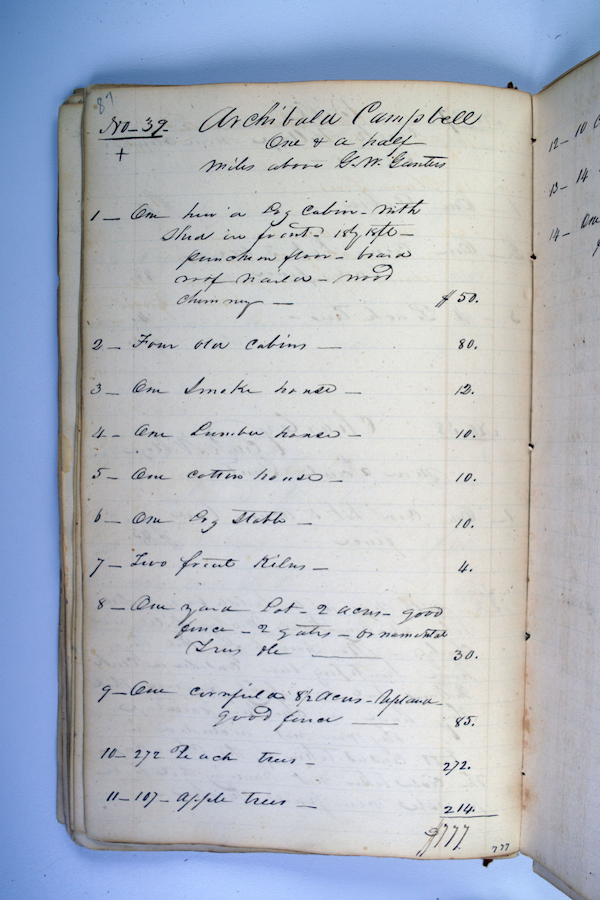 87
No. 39 Archibald Campbell
+ One & a half
miles above G. W. Gunters
1 — One hew'd Log Cabin — with
Shed in front — 18 by 18 ft —
puncheon floor — board
roof nailed — wood
chimney — $50.
2 — Four old cabins — 80.
3 — One Smoke house — 12.
4 — One Lumber house — 10.
5 — One cotton house — 10.
6 — One Log Stable — 10.
7 — Two fruit Kilns — 4.
8 — One yard Lot — 2 acres — good
fence — 2 gates — ornamental
Trees &c — 30.
9 — One cornfield 8½ Acres — Upland —
good fence — 85.
10 — 272 Peach trees — 272.
11 — 107 — Apple trees — 214.
$777. 777
12 — 10
13 — 14
14 — One